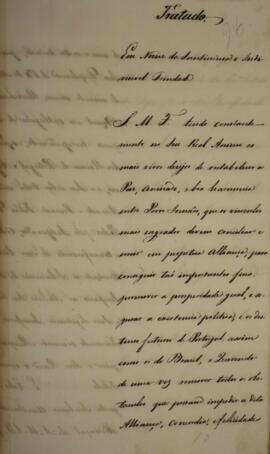 Tratado
Em Nome da Santissima e Indi-
visivel Trindade
S. M. F. tendo constante-
mente no Seu Real Animo os
mais vivos desejos de restabelecer a
Paz, Amizade, e boa harmonia
entre Povos Irmãos, que os vinculos
mais sagrados devem conciliar e
unir em perpetua Alliança, para
conseguir tão importantes fins,
promover a prosperidade geral, e se-
gurar a existencia politica, e os des-
tinos futuros de Portugal, assim
como os do Brasil, e Querendo
de uma vez remover todos os obs-
taculos que possão impedir a dita
Alliança, Concordia, e felicidade